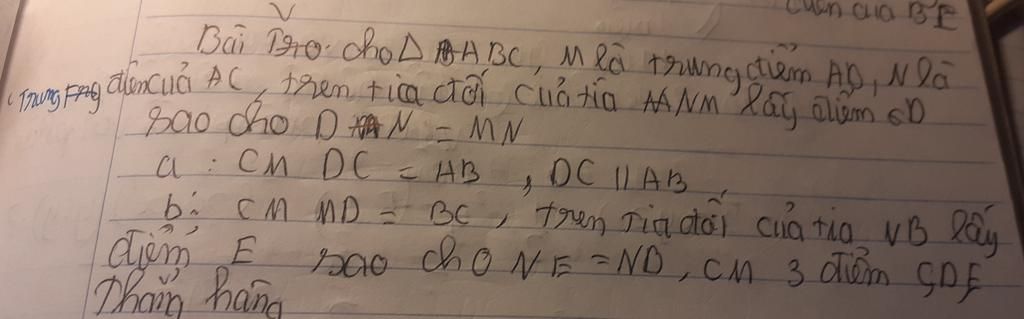 cuẩn của BE
Bài Tro. cho Δ ABC, M là trung điểm AD, N là
(Trung điểm của AC, tren tia đối của tia NM lấy điểm D
sao cho D N = MN
a : CM DC = AB , DC // AB,
b : CM MD = BC, tren Tia đối của tia NB lấy
điểm E sao cho NE = ND, CM 3 điểm C,D,E
Thẳng hàng